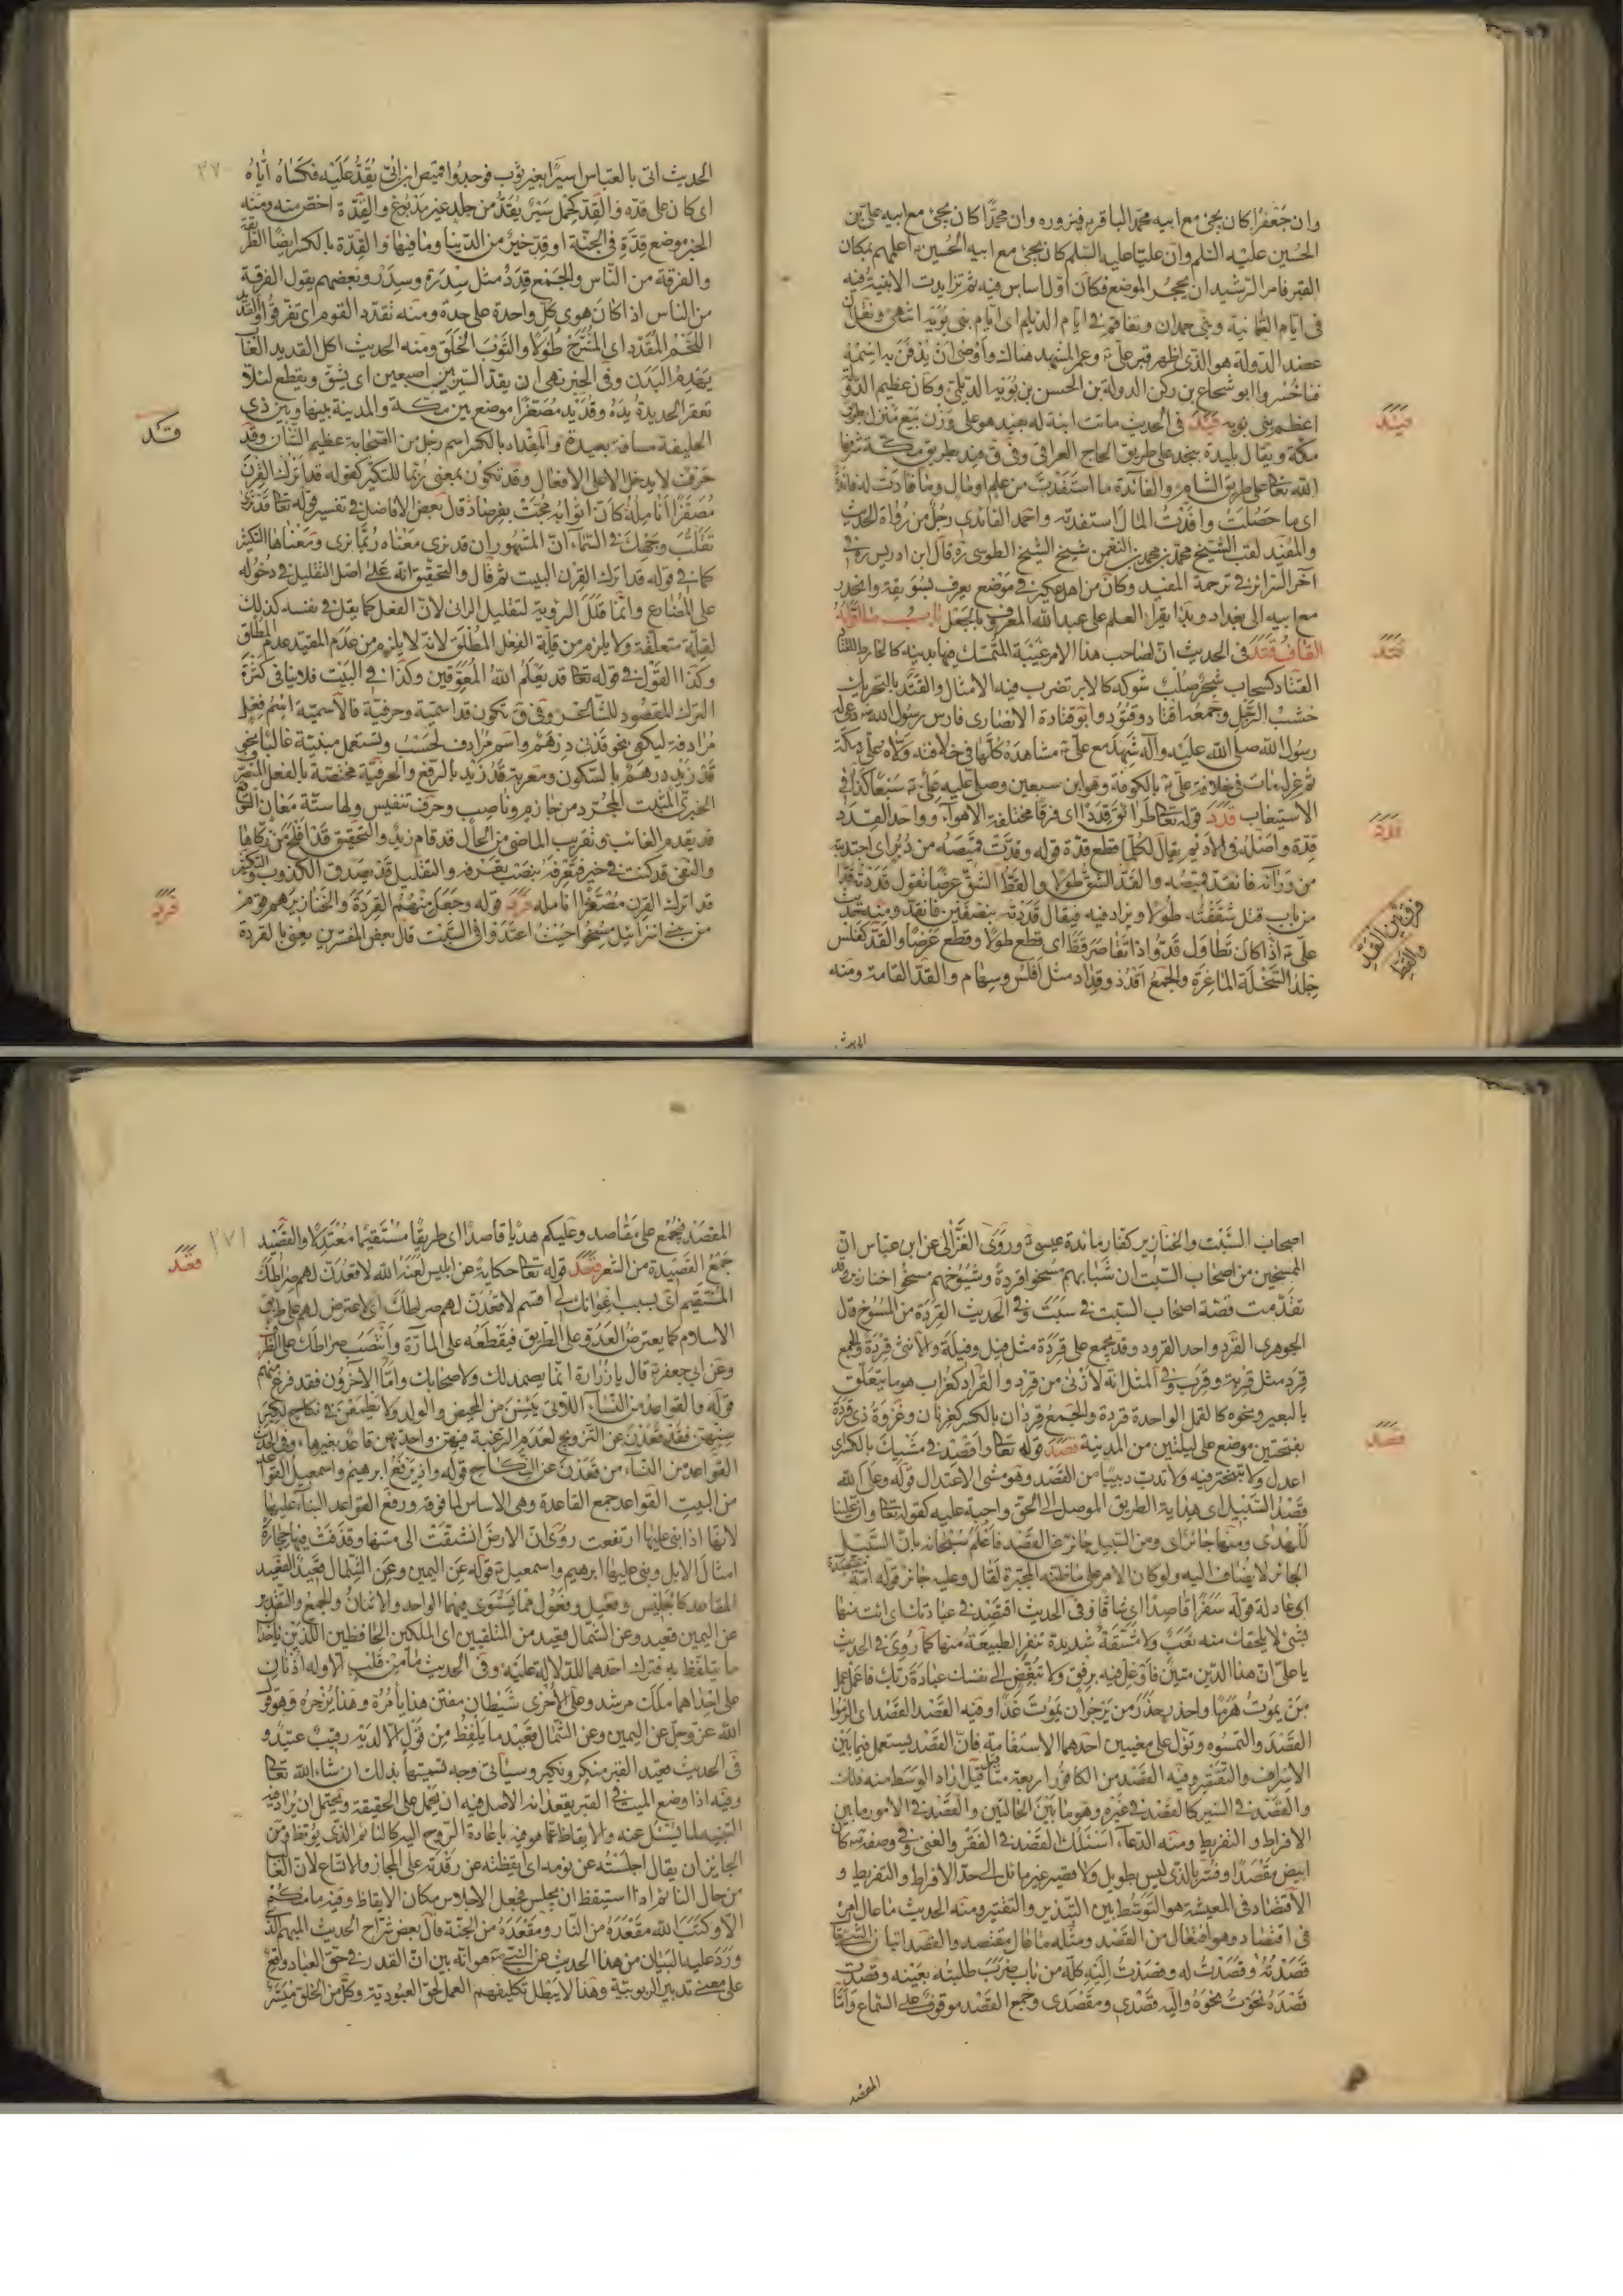 وان جعفرا كان يجئ مع ابيه محمد الباقر فيزوره وان محمدا كان يجئ مع ابيه علي بن
الحسين عليه السلم وان عليا عليه السلم كان يجئ مع ابيه الحسين اعلمهم بمكان
القبر فامر الرشيد ان يحجر الموضع فكان اول اساس فيه ثم تزايدت الابنية فيه
في ايام السامانية وبني حمدان وتفاقم في ايام الديلم اي ايام بني بويه انتهى ونقل ان
عضد الدولة هو الذي اظهر قبر علي ع وعمر المشهد هناك واوصى ان يدفن به اسمه
فناخسروا ابو شجاع بن ركن الدولة بن الحسن بن بويه الديلمي وكان عظيم الدولة
اعظم بني بويه فيد في الحديث ماتت ابنة له بفيد هو على وزن بيع منزل بطريق
مكة ويقال بليدة بنجد على طريق الحاج العراقي وفي ق فيد بطريق مكة شرفها
الله تعالى على طريق الشام والفائدة ما استفدت من علم او مال وما فادت له فائدة
اي ما حصلت وافدت المال استفدته واحمد الفائدي رجل من رواة الحديث
والمفيد لقب الشيخ محمد بن محمد بن النعمن شيخ الشيخ الطوسي ره قال ابن ادريس ره في
آخر السرائر في ترجمة المفيد وكان من اهل عكبر في موضع يعرف بسويقة وانحدر
مع ابيه الى بغداد وبدأ بقراءة العلم على عبد الله المعروف بالجعل باب ما اوله
القاف قتد في الحديث ان لصاحب هذا الامر غيبة المتمسك فيها بدينه كالخارط للقتاد
القتاد كسحاب شجر صلب شوكه كالابر تضرب فيه الامثال والقتد بالتحريك
خشب الرحل وجمعه اقتاد وقتود وابو قتادة الانصاري فارس رسول الله ص دعا له
رسول الله صلى الله عليه وآله شهد مع علي ع مشاهده كلها في خلافته ولاه علي ع مكة
ثم عزله مات في خلافة علي ع بالكوفة وهو ابن سبعين وصلى عليه علي ع سبعا كذا في
الاستيعاب قدد قوله تعالى طرائق قددا اي فرقا مختلفة الاهواء وواحد القدد
قدة واصله في الاديم يقال لكل ما قطع قدة قوله وقدت قميصه من دبر اي اجتذبته
من ورائه فانقد قميصه والقد الشق طولا والقط الشق عرضا تقول قددته قدا
من باب قتل شققته طولا ويزاد فيه فيقال قددته بنصفين فانقد ومنه حديث
علي ع اذا كان تطاول قد واذا تقاصر قط اي قطع طولا وقطع عرضا والقد كفلس
جلد السخلة الماعزة والجمع اقد وقداد مثل افلس وسهام والقد القامة ومنه
فيد
قتد
قدد
فرق بين القد
والقط
الحديث
الحديث اتى بالعباس اسيرا بغير ثوب فوجدوا قميص ابن ابي يقد عليه فكساه اياه
اي كان على قده والقد كحمل سير يقد من جلد غير مدبوغ والقدة اخص منه ومنه
الخبر موضع قدة في الجنة او قد خير من الدنيا وما فيها والقدة بالكسر ايضا الطريقة
والفرقة من الناس والجمع قدد مثل سدرة وسدر وبعضهم يقول الفرقة
من الناس اذا كان هوى كل واحدة على حدة ومنه تقدد القوم اي تفرقوا والقديد
اللحم المقدد اي المشرح طولا والثوب الخلق ومنه الحديث اكل القديد الغاب
يهدم البدن وفي الخبر نهى ان يقد السير بين اصبعين اي يشق ويقطع لئلا
تعقر الحديدة يده وقديد مصغرا موضع بين مكة والمدينة بينها وبين ذي
الحليفة مسافة بعيدة والمقداد بالكسر اسم رجل من الصحابة عظيم الشأن وقد
حرف لا يدخل الا على الافعال وقد تكون بمعنى ربما للتكثير كقوله قد اترك القرن
مصفرا انامله كان اثوابه مجت بفرصاد قال بعض الافاضل في تفسير قوله تعالى قد نرى
تقلب وجهك في السماء ان المشهور ان قد نرى معناه ربما نرى ومعناها التكثير
كما في قوله قد اترك القرن البيت ثم قال والتحقيق انه على اصل التقليل في دخوله
على المضارع وانما قلل الرؤية لتقليل المرئي لان الفعل كما يقل في نفسه كذلك
لقلة متعلقه ولا يلزم من قلة الفعل المطلق لانه لا يلزم من عدم المقيد عدم المطلق
وكذا القول في قوله تعالى قد يعلم الله المعوقين وكذا في البيت فلا ينافي كثرة
الترك المقصود للشاعر وفي ق تكون قد اسمية وحرفية فالاسمية اسم فعل
مرادفة ليكفي نحو قدني درهم واسم مرادف لحسب وتستعمل مبنية غالبا نحو
قد زيد درهم بالسكون ومعربة قد زيد بالرفع والحرفية مختصة بالفعل المتصرف
الخبري المثبت المجرد من جازم وناصب وحرف تنفيس ولها ستة معان التوقع
قد يقدم الغائب وتقريب الماضي من الحال قد قام زيد والتحقيق قد افلح من زكاها
والنفي قد كنت في خير فتعرفه بنصب تعرفه والتقليل قد يصدق الكذوب والتكثير
قد اترك القرن مصفرا انامله قرد قوله وجعل منهم القردة والخنازير هم قوم
من بني اسرائيل مسخوا حيث اعتدوا في السبت قال بعض المفسرين يعني بالقردة
٣٧
قد
قرد
اصحاب السبت والخنازير كفار مائدة عيسى ع وروى الغزالي عن ابن عباس ان
الممسوخين من اصحاب السبت ان شبابهم مسخوا قردة وشيوخهم مسخوا خنازير وقد
تقدمت قصة اصحاب السبت في سبت وفي الحديث القردة من المسوخ قال
الجوهري القرد واحد القرود وقد يجمع على قردة مثل فيل وفيلة والانثى قردة والجمع
قرد مثل قربة وقرب وفي المثل انه لازنى من قرد والقراد كغراب هو ما يتعلق
بالبعير ونحوه كالقمل الواحدة قردة والجمع قردان بالكسر كغربان وغزوة ذي قردة
بفتحتين موضع على ليلتين من المدينة قصد قوله تعالى واقصد في مشيك بالكسر اي
اعدل ولا تتبختر فيه ولا تدب دبيبا من القصد وهو مشي الاعتدال قوله وعلى الله
قصد السبيل اي هداية الطريق الموصل الى الحق واجبة عليه كقوله تعالى وان علينا
للهدى ومنها جائر اي ومن السبيل جائز عن القصد فاعلم سبحانه بان السبيل
الجائر لا يضاف اليه ولو كان الامر على ما ظنه المجبرة لقال وعليه جائر قوله امة مقتصدة
اي عادلة قوله سفرا قاصدا اي شاقا وفي الحديث اقتصد في عبادتك اي ائت منها
بشئ لا يلحقك منه تعب ولا مشقة شديدة تنفر الطبيعة منها كما روي في الحديث
يا علي ان هذا الدين متين فاوغل فيه برفق ولا تبغض الى نفسك عبادة ربك فاعمل عمل
من يموت هرما واحذر حذر من يرجو ان يموت غدا وفيه القصد القصد اي الزموا
القصد والتمسوه ونزل على معنيين احدهما الاستقامة فان القصد يستعمل فيما بين
الاسراف والتقتير وفيه القصد من الكافور اربعة مثاقيل اراد الوسط منه ذلك
والقصد في السير كالقصد في غيره وهو ما بين الحالتين والقصد في الامور ما بين
الافراط والتفريط ومنه الدعاء اسئلك القصد في الفقر والغنى وفي وصفه ص كان
ابيض مقصدا وفسر بالذي ليس بطويل ولا قصير غير مائل الى حد الافراط والتفريط و
الاقتصاد في المعيشة هو التوسط بين التبذير والتقتير ومنه الحديث ما عال امرء
في اقتصاد وهو افتعال من القصد ومثله ما عال مقتصد والقصد اتيان الشئ
قصدته وقصدت له وقصدت اليه كله من باب ضرب طلبته بعينه وقصدت
قصده نحوت نحوه واليه قصدي ومقصدي وجمع القصد موقوف على السماع واما
قصد
المقصد
المقصد فيجمع على مقاصد وعليكم هديا قاصدا اي طريقا مستقيما معتدلا والقصيد
جمع القصيدة من الشعر قعد قوله تعالى حكاية عن ابليس لعنه الله لاقعدن لهم صراطك
المستقيم اي بسبب اغوائك لي اقسم لاقعدن لهم صراطك اي لاعترض لهم على طريق
الاسلام كما يعترض العدو على الطريق فيقطعه على المارة وانتصب صراطك على الظرف
وعن ابي جعفر ع قال يا زرارة انما يصمد لك ولاصحابك واما الآخرون فقد فرغ منهم
قوله والقواعد من النساء اللاتي يئسن من المحيض والولد ولا يطمعن في نكاح لكبر
سنهن فقد قعدن عن التزويج لعدم الرغبة فيهن واحدتهن قاعد بغير هاء وفي الحديث
القواعد من النساء من قعدن عن النكاح قوله واذ يرفع ابرهيم واسمعيل القواعد
من البيت القواعد جمع القاعدة وهي الاساس لما فوقه ورفع القواعد البناء عليها
لانها اذا بني عليها ارتفعت روي ان الارض انشقت الى منتهاها وقذفت فيها حجارة
امثال الابل وبنى عليها ابرهيم واسمعيل ع قوله عن اليمين وعن الشمال قعيد القعيد
المقاعد كالجليس وفعيل وفعول مما يستوي فيهما الواحد والاثنان والجمع والتقدير
عن اليمين قعيد وعن الشمال قعيد من المتلقيين اي الملكين الحافظين اللذين ياخذا
ما يتلفظ به فترك احدهما للدلالة عليه وفي الحديث ما من قلب الا وله اذنان
على احديهما ملك مرشد وعلى الاخرى شيطان مفتن هذا يأمره وهذا يزجره وهو قول
الله عز وجل عن اليمين وعن الشمال قعيد ما يلفظ من قول الا لديه رقيب عتيد و
في الحديث قعيد القبر منكر ونكير وسيأتي وجه تسميتها بذلك ان شاء الله تعالى
وفيه اذا وضع الميت في القبر يقعدانه الاصل فيه ان يحمل على الحقيقة ويحتمل ان يراد فيه
التنبيه لما يسئل عنه والايقاظ عما هو فيه باعادة الروح اليه كالنائم الذي يوقظ ومن
الجايز ان يقال اجلسته عن نومه اي ايقظته عن رقدته على المجاز والاتساع لان الغالب
من حال النائم اذا استيقظ ان يجلس فجعل الاجلاس مكان الايقاظ وفيه ما منكم
الا وكتب الله مقعده من النار ومقعده من الجنة قال بعض شراح الحديث المبهم الذي
ورد عليه البيان من هذا الحديث عن النبي ص هو انه بين ان القدر في حق العباد واقع
على معنى تدبير الربوبية وهذا لا يبطل تكليفهم العمل لحق العبودية وكل من الخلق ميسر
٣٧١
قعد